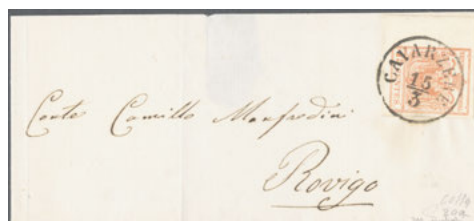 CAVARZERE
15
3
Conte Camillo Manfredini
Rovigo